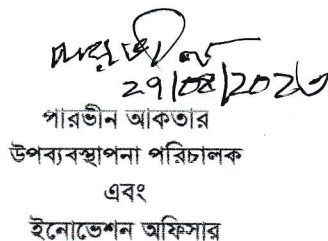 পারভীন
29/08/2023
পারভীন আকতার
উপব্যবস্থাপনা পরিচালক
এবং
ইনোভেশন অফিসার